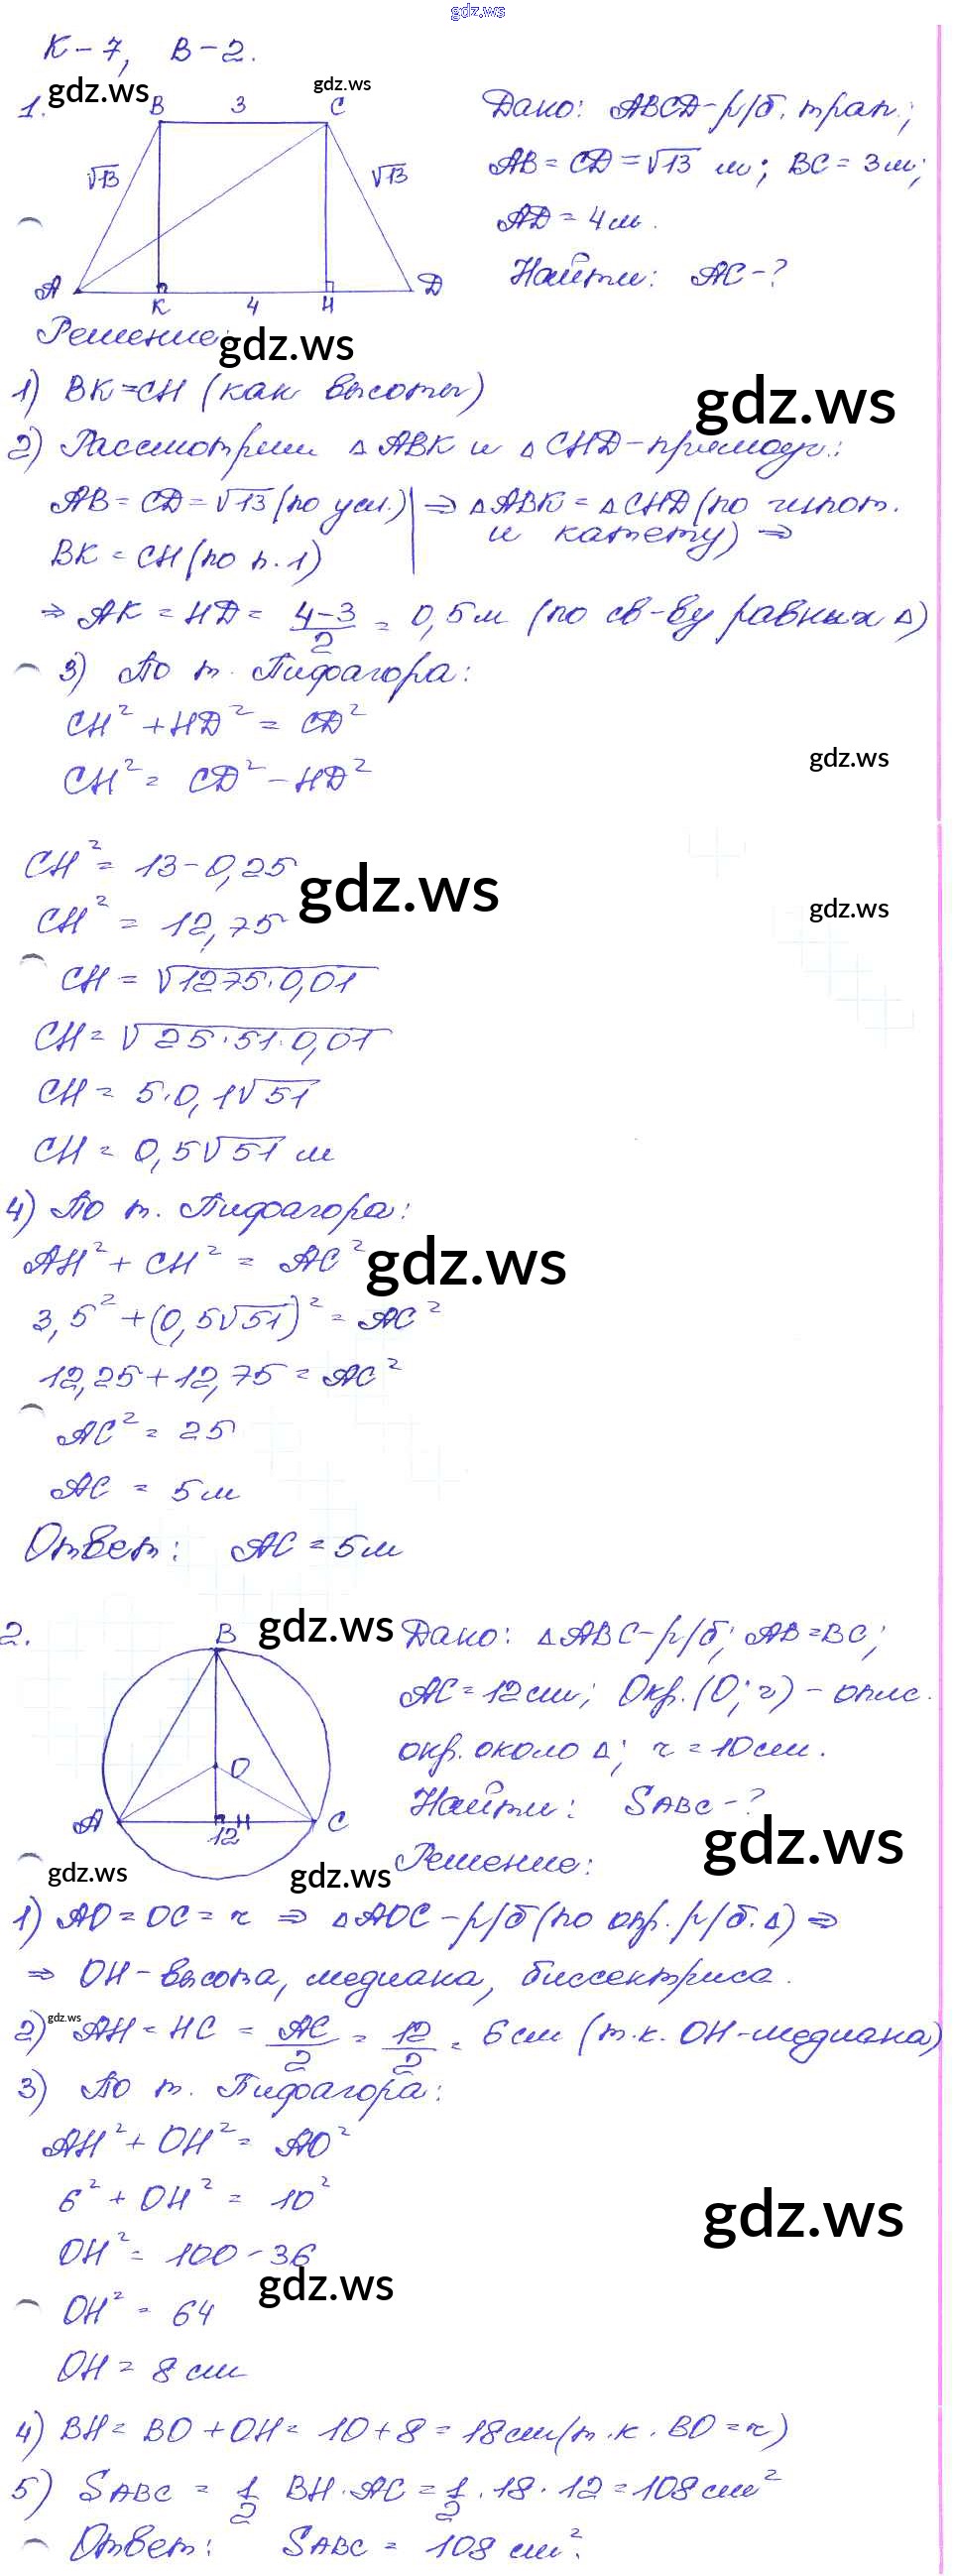 gdz.ws
К-7, В-2.
gdz.ws
gdz.ws
1.
B 3 C
√13 √13
A K 4 H D
Дано: ABCD-р/б. трап.;
AB = CD = √13 м; BC = 3м;
AD = 4м.
Найти: AC-?
Решение:
gdz.ws
1) BK=CH (как высоты)
gdz.ws
2) Рассмотрим △ABK и △CHD-прямоуг.:
AB = CD = √13 (по усл.) | ⇒ △ABK = △CHD (по гипот.
BK = CH (по п.1) | и катету) ⇒
⇒ AK = HD = (4-3)/2 = 0,5м (по св-ву равных △)
3) По т. Пифагора:
CH² + HD² = CD²
CH² = CD² - HD²
gdz.ws
CH² = 13-0,25
gdz.ws
gdz.ws
CH² = 12,75
CH = √1275·0,01
CH = √25·51·0,01
CH = 5·0,1√51
CH = 0,5√51 м
4) По т. Пифагора:
AH² + CH² = AC²
gdz.ws
3,5² + (0,5√51)² = AC²
12,25 + 12,75 = AC²
AC² = 25
AC = 5м
Ответ: AC = 5м
2.
gdz.ws
B
O
A 12 H C
Дано: △ABC-р/б; AB=BC;
AC = 12см; Окр.(O; r) - опис.
окр. около △; r = 10см.
Найти: SABC-?
gdz.ws
Решение:
gdz.ws
gdz.ws
1) AO = OC = r ⇒ △AOC-р/б (по опр. р/б. △) ⇒
⇒ OH-высота, медиана, биссектриса.
gdz.ws
2) AH = HC = AC/2 = 12/2 = 6см (т.к. OH-медиана)
3) По т. Пифагора:
AH² + OH² = AO²
6² + OH² = 10²
gdz.ws
OH² = 100-36
gdz.ws
OH² = 64
OH = 8см
4) BH = BO + OH = 10+8 = 18см (т.к. BO = r)
5) SABC = 1/2 BH·AC = 1/2·18·12 = 108см²
Ответ: SABC = 108 см².